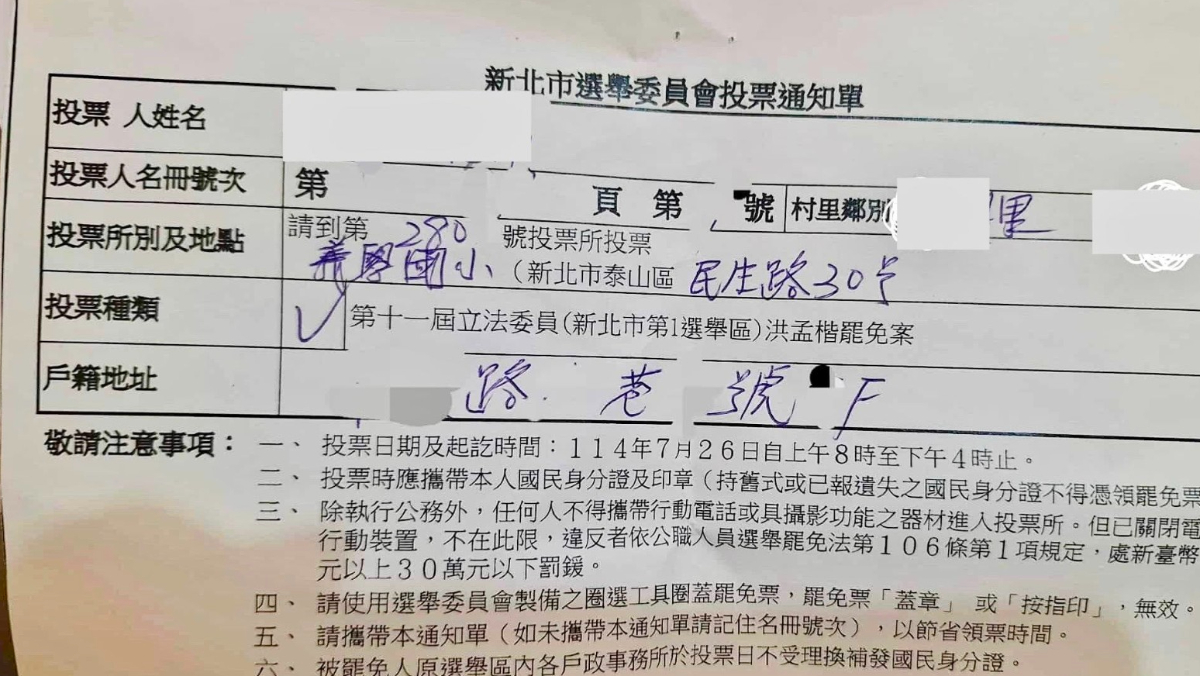 新北市選舉委員會投票通知單
投票 人姓名
投票人名冊號次 第 頁 第 號 村里鄰別 里
投票所別及地點 請到第 280 號投票所投票
義學國小 (新北市泰山區 民生路30号
投票種類 ✓ 第十一屆立法委員(新北市第1選舉區)洪孟楷罷免案
戶籍地址 路 巷 號 F
敬請注意事項：一、投票日期及起訖時間：114年7月26日自上午8時至下午4時止。
二、投票時應攜帶本人國民身分證及印章（持舊式或已報遺失之國民身分證不得憑領罷免票
三、除執行公務外，任何人不得攜帶行動電話或具攝影功能之器材進入投票所。但已關閉電
行動裝置，不在此限，違反者依公職人員選舉罷免法第106條第1項規定，處新臺幣
元以上30萬元以下罰鍰。
四、請使用選舉委員會製備之圈選工具圈蓋罷免票，罷免票「蓋章」或「按指印」，無效。
五、請攜帶本通知單（如未攜帶本通知單請記住名冊號次），以節省領票時間。
六、被罷免人原選舉區內各戶政事務所於投票日不受理換補發國民身分證。